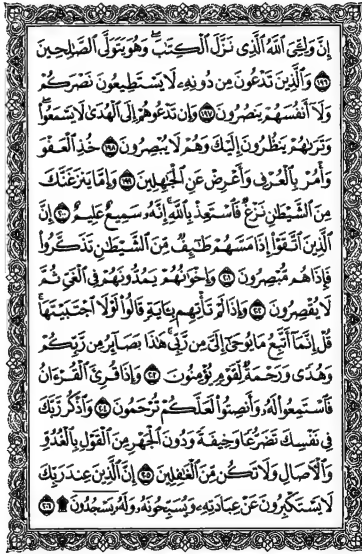 إِنَّ وَلِـِّۧيَ ٱللَّهُ ٱلَّذِى نَزَّلَ ٱلْكِتَٰبَ ۖ وَهُوَ يَتَوَلَّى ٱلصَّٰلِحِينَ
﴿١٩٦﴾ وَٱلَّذِينَ تَدْعُونَ مِن دُونِهِۦ لَا يَسْتَطِيعُونَ نَصْرَكُمْ
وَلَآ أَنفُسَهُمْ يَنصُرُونَ ﴿١٩٧﴾ وَإِن تَدْعُوهُمْ إِلَى ٱلْهُدَىٰ لَا يَسْمَعُوا۟ ۖ
وَتَرَىٰهُمْ يَنظُرُونَ إِلَيْكَ وَهُمْ لَا يُبْصِرُونَ ﴿١٩٨﴾ خُذِ ٱلْعَفْوَ
وَأْمُرْ بِٱلْعُرْفِ وَأَعْرِضْ عَنِ ٱلْجَٰهِلِينَ ﴿١٩٩﴾ وَإِمَّا يَنزَغَنَّكَ
مِنَ ٱلشَّيْطَٰنِ نَزْغٌ فَٱسْتَعِذْ بِٱللَّهِ ۚ إِنَّهُۥ سَمِيعٌ عَلِيمٌ ﴿٢٠٠﴾ إِنَّ
ٱلَّذِينَ ٱتَّقَوْا۟ إِذَا مَسَّهُمْ طَٰٓئِفٌ مِّنَ ٱلشَّيْطَٰنِ تَذَكَّرُوا۟
فَإِذَا هُم مُّبْصِرُونَ ﴿٢٠١﴾ وَإِخْوَٰنُهُمْ يَمُدُّونَهُمْ فِى ٱلْغَىِّ ثُمَّ
لَا يُقْصِرُونَ ﴿٢٠٢﴾ وَإِذَا لَمْ تَأْتِهِم بِـَٔايَةٍ قَالُوا۟ لَوْلَا ٱجْتَبَيْتَهَا ۚ
قُلْ إِنَّمَآ أَتَّبِعُ مَا يُوحَىٰٓ إِلَىَّ مِن رَّبِّى ۚ هَٰذَا بَصَآئِرُ مِن رَّبِّكُمْ
وَهُدًى وَرَحْمَةٌ لِّقَوْمٍ يُؤْمِنُونَ ﴿٢٠٣﴾ وَإِذَا قُرِئَ ٱلْقُرْءَانُ
فَٱسْتَمِعُوا۟ لَهُۥ وَأَنصِتُوا۟ لَعَلَّكُمْ تُرْحَمُونَ ﴿٢٠٤﴾ وَٱذْكُر رَّبَّكَ
فِى نَفْسِكَ تَضَرُّعًا وَخِيفَةً وَدُونَ ٱلْجَهْرِ مِنَ ٱلْقَوْلِ بِٱلْغُدُوِّ
وَٱلْءَاصَالِ وَلَا تَكُن مِّنَ ٱلْغَٰفِلِينَ ﴿٢٠٥﴾ إِنَّ ٱلَّذِينَ عِندَ رَبِّكَ
لَا يَسْتَكْبِرُونَ عَنْ عِبَادَتِهِۦ وَيُسَبِّحُونَهُۥ وَلَهُۥ يَسْجُدُونَ ۩ ﴿٢٠٦﴾